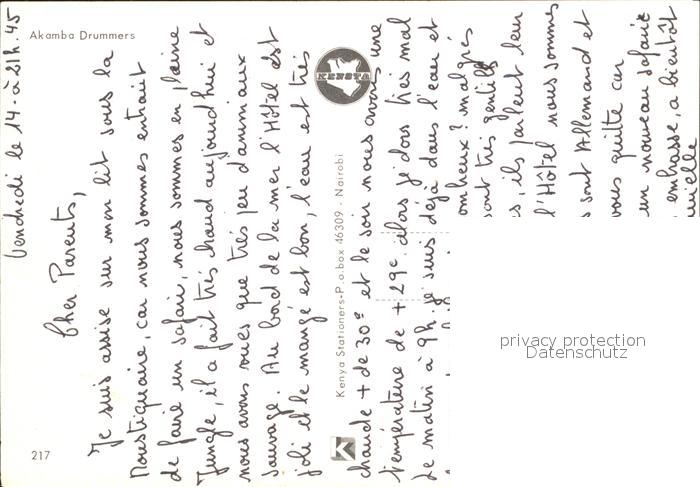 Akamba Drummers
Vendredi le 14 - à 21h.45
Cher Parents,
Je suis assise sur mon lit sous la
Moustiquaire, car nous sommes entrait
de faire un safari, nous sommes en plaine
Jungle, il a fait très chaud aujourd'hui et
nous avons vues que très peu d'animaux
sauvage. Au bord de la mer l'Hôtel est
joli et le mangé est bon, l'eau est très
chaude + de 30° et le soir nous avons une
température de + 29° alors je dors très mal
Le matin à 9h. je suis déjà dans l'eau et
malgrés
sont très gentils
ils parlent leur
l'Hôtel nous sommes
sont Allemand et
vous quitte car
un nouveau safari
embrasse, a bientôt
KENSTA
Kenya Stationers-P.o.box 46309 - Nairobi
K
217
privacy protection
Datenschutz